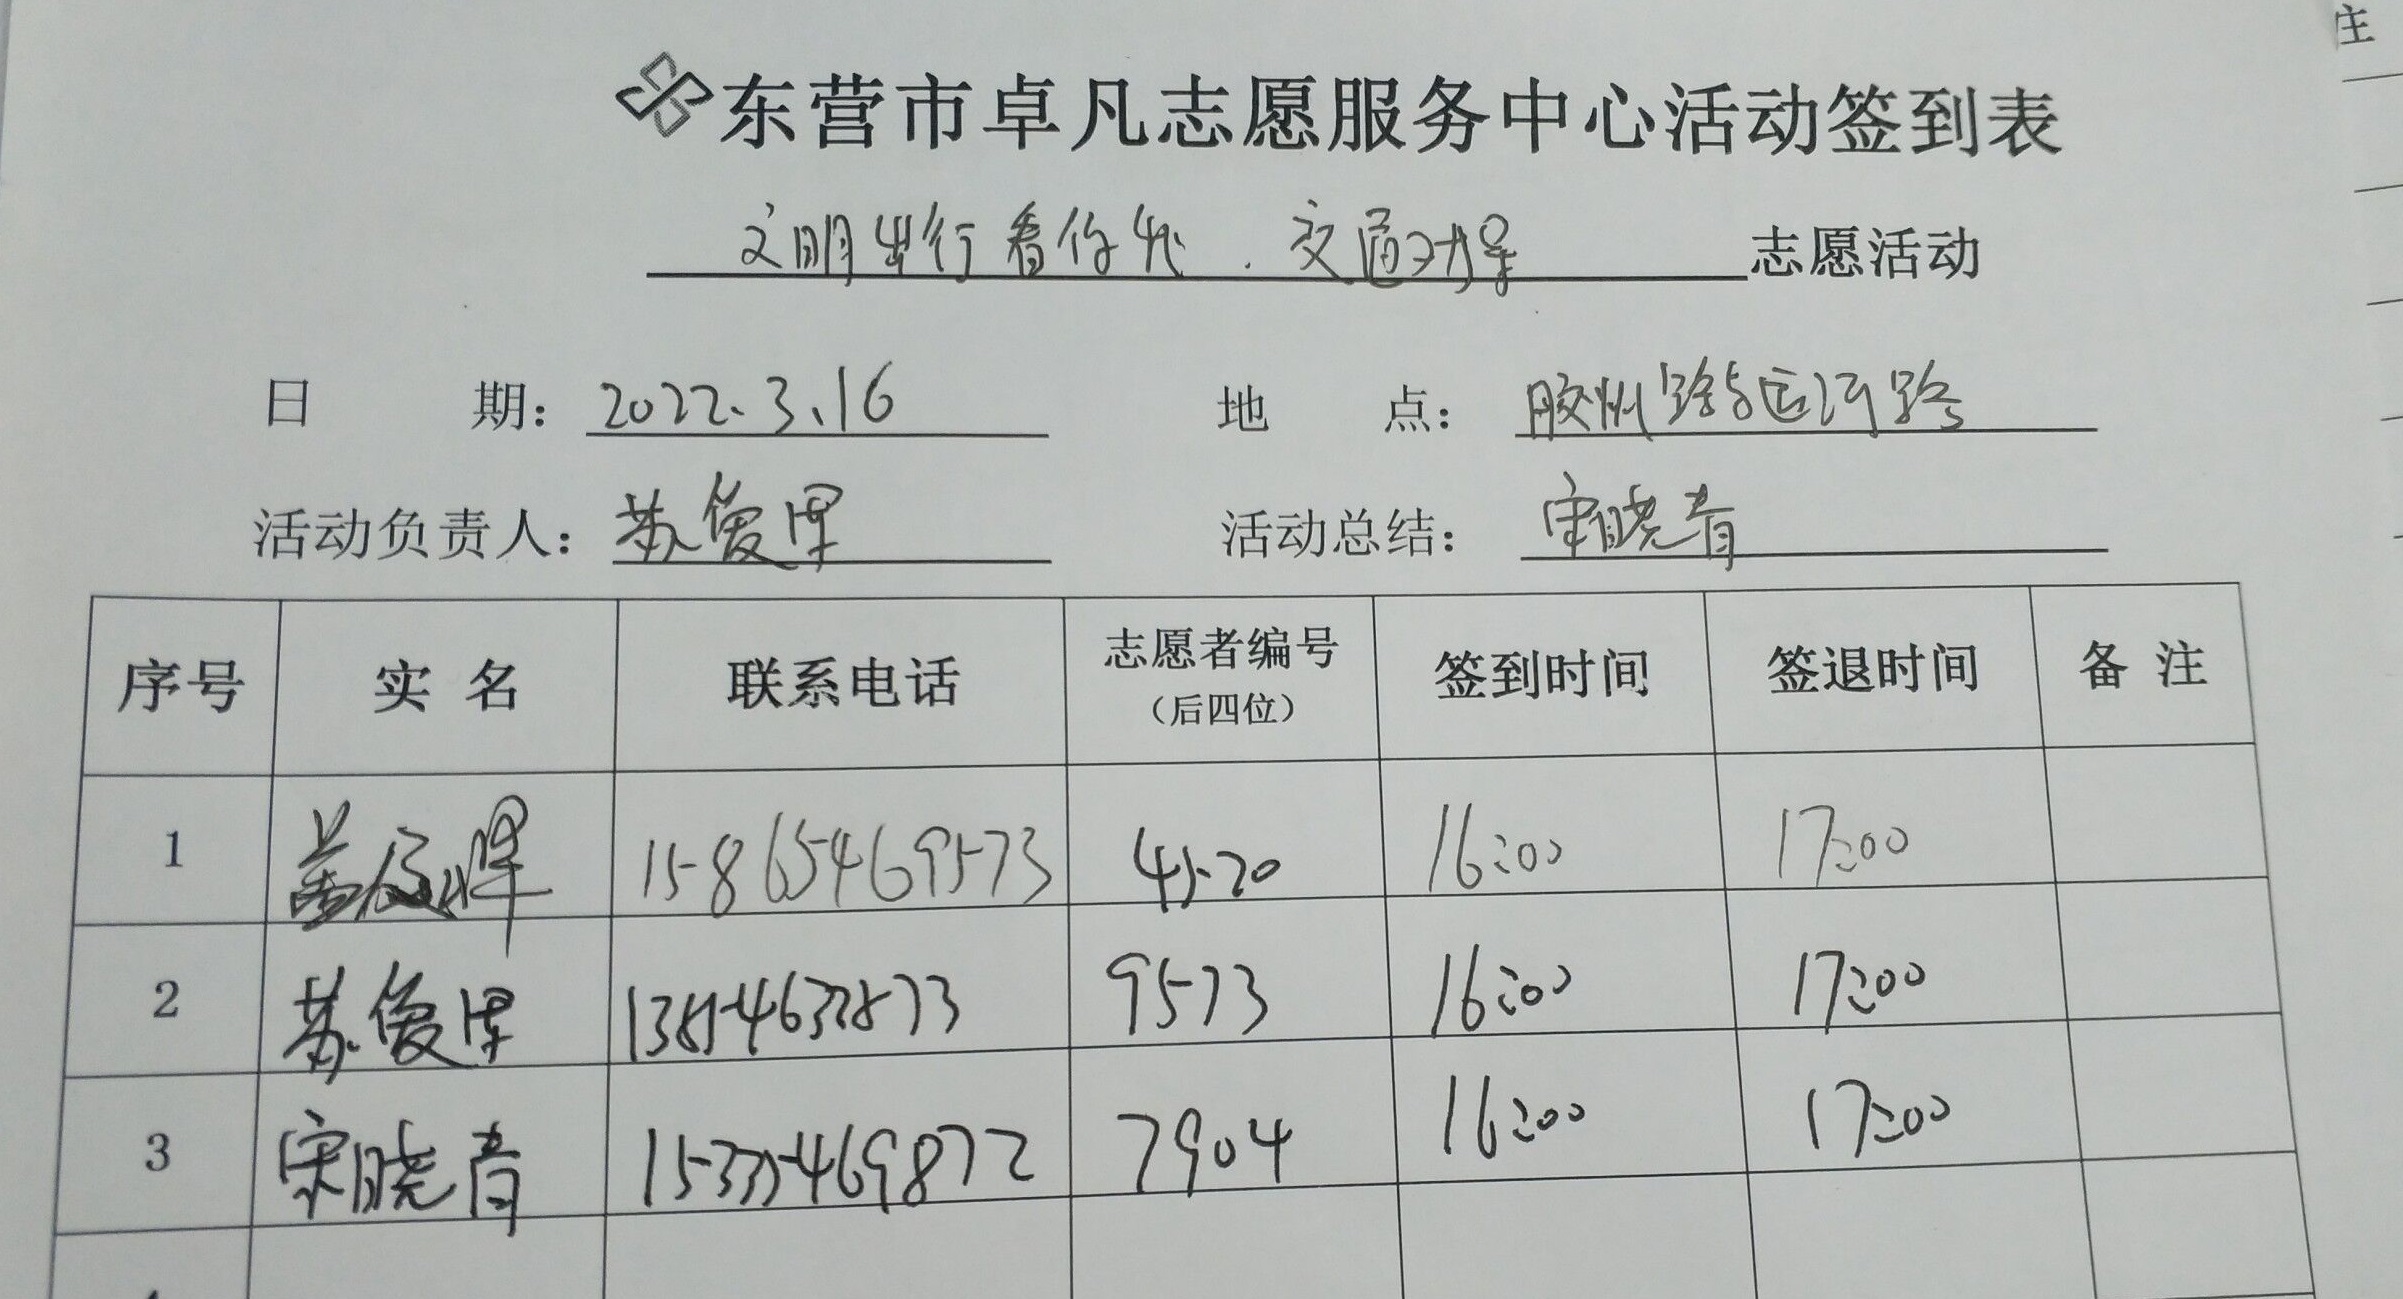 东营市卓凡志愿服务中心活动签到表
文明出行看你我.交通劝导 志愿活动
日 期: 2022.3.16 地 点: 胶州路与运河路
活动负责人: 苏俊军 活动总结: 宋晓青
序号 实 名 联系电话 志愿者编号(后四位) 签到时间 签退时间 备 注
1 15865469573 4520 16:00 17:00
2 苏俊军 9573 16:00 17:00
3 宋晓青 7904 16:00 17:00
主